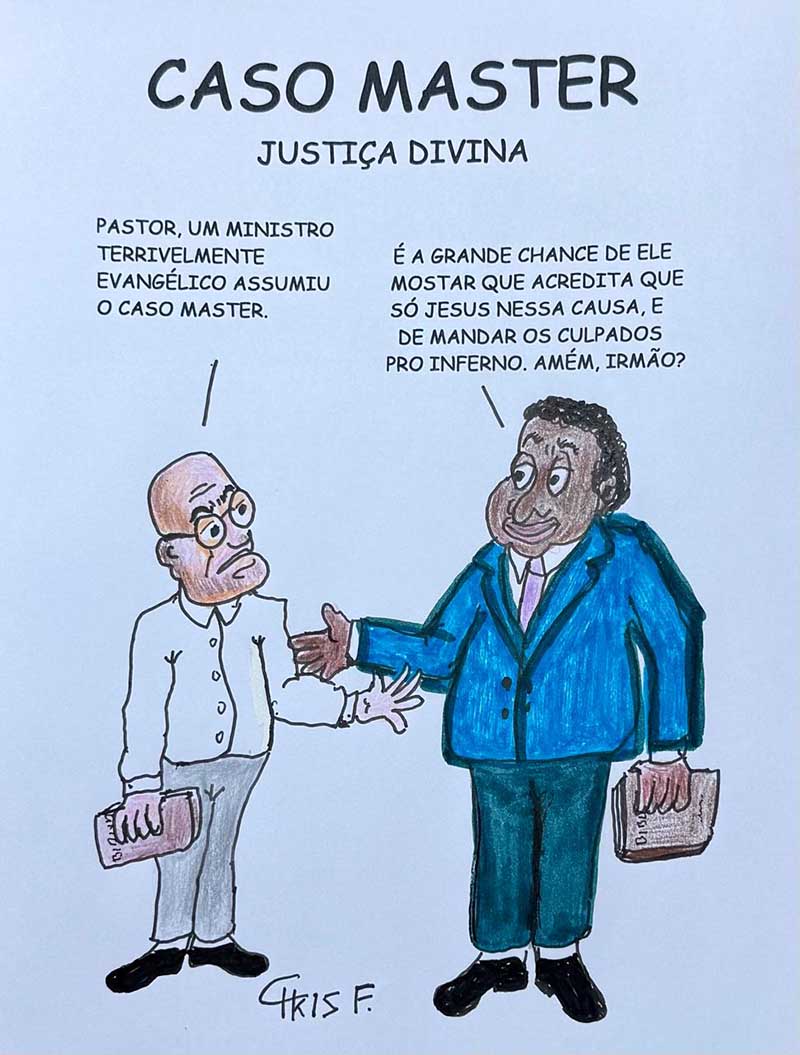 CASO MASTER
JUSTIÇA DIVINA
PASTOR, UM MINISTRO
TERRIVELMENTE
EVANGÉLICO ASSUMIU
O CASO MASTER.
É A GRANDE CHANCE DE ELE
MOSTAR QUE ACREDITA QUE
SÓ JESUS NESSA CAUSA, E
DE MANDAR OS CULPADOS
PRO INFERNO. AMÉM, IRMÃO?
CHRIS F.